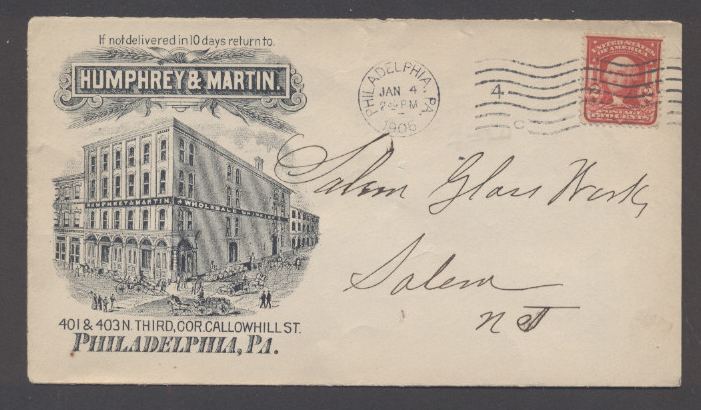 If not delivered in 10 days return to
HUMPHREY & MARTIN.
HUMPHREY & MARTIN. WHOLESALE
401 & 403 N. THIRD, COR. CALLOWHILL ST.
PHILADELPHIA, PA.
PHILADELPHIA, PA.
JAN 4
PM
1905
4
C
UNITED STATES
OF AMERICA
2 2
POSTAGE
TWO CENTS
Salem Glass Works
Salem
NJ